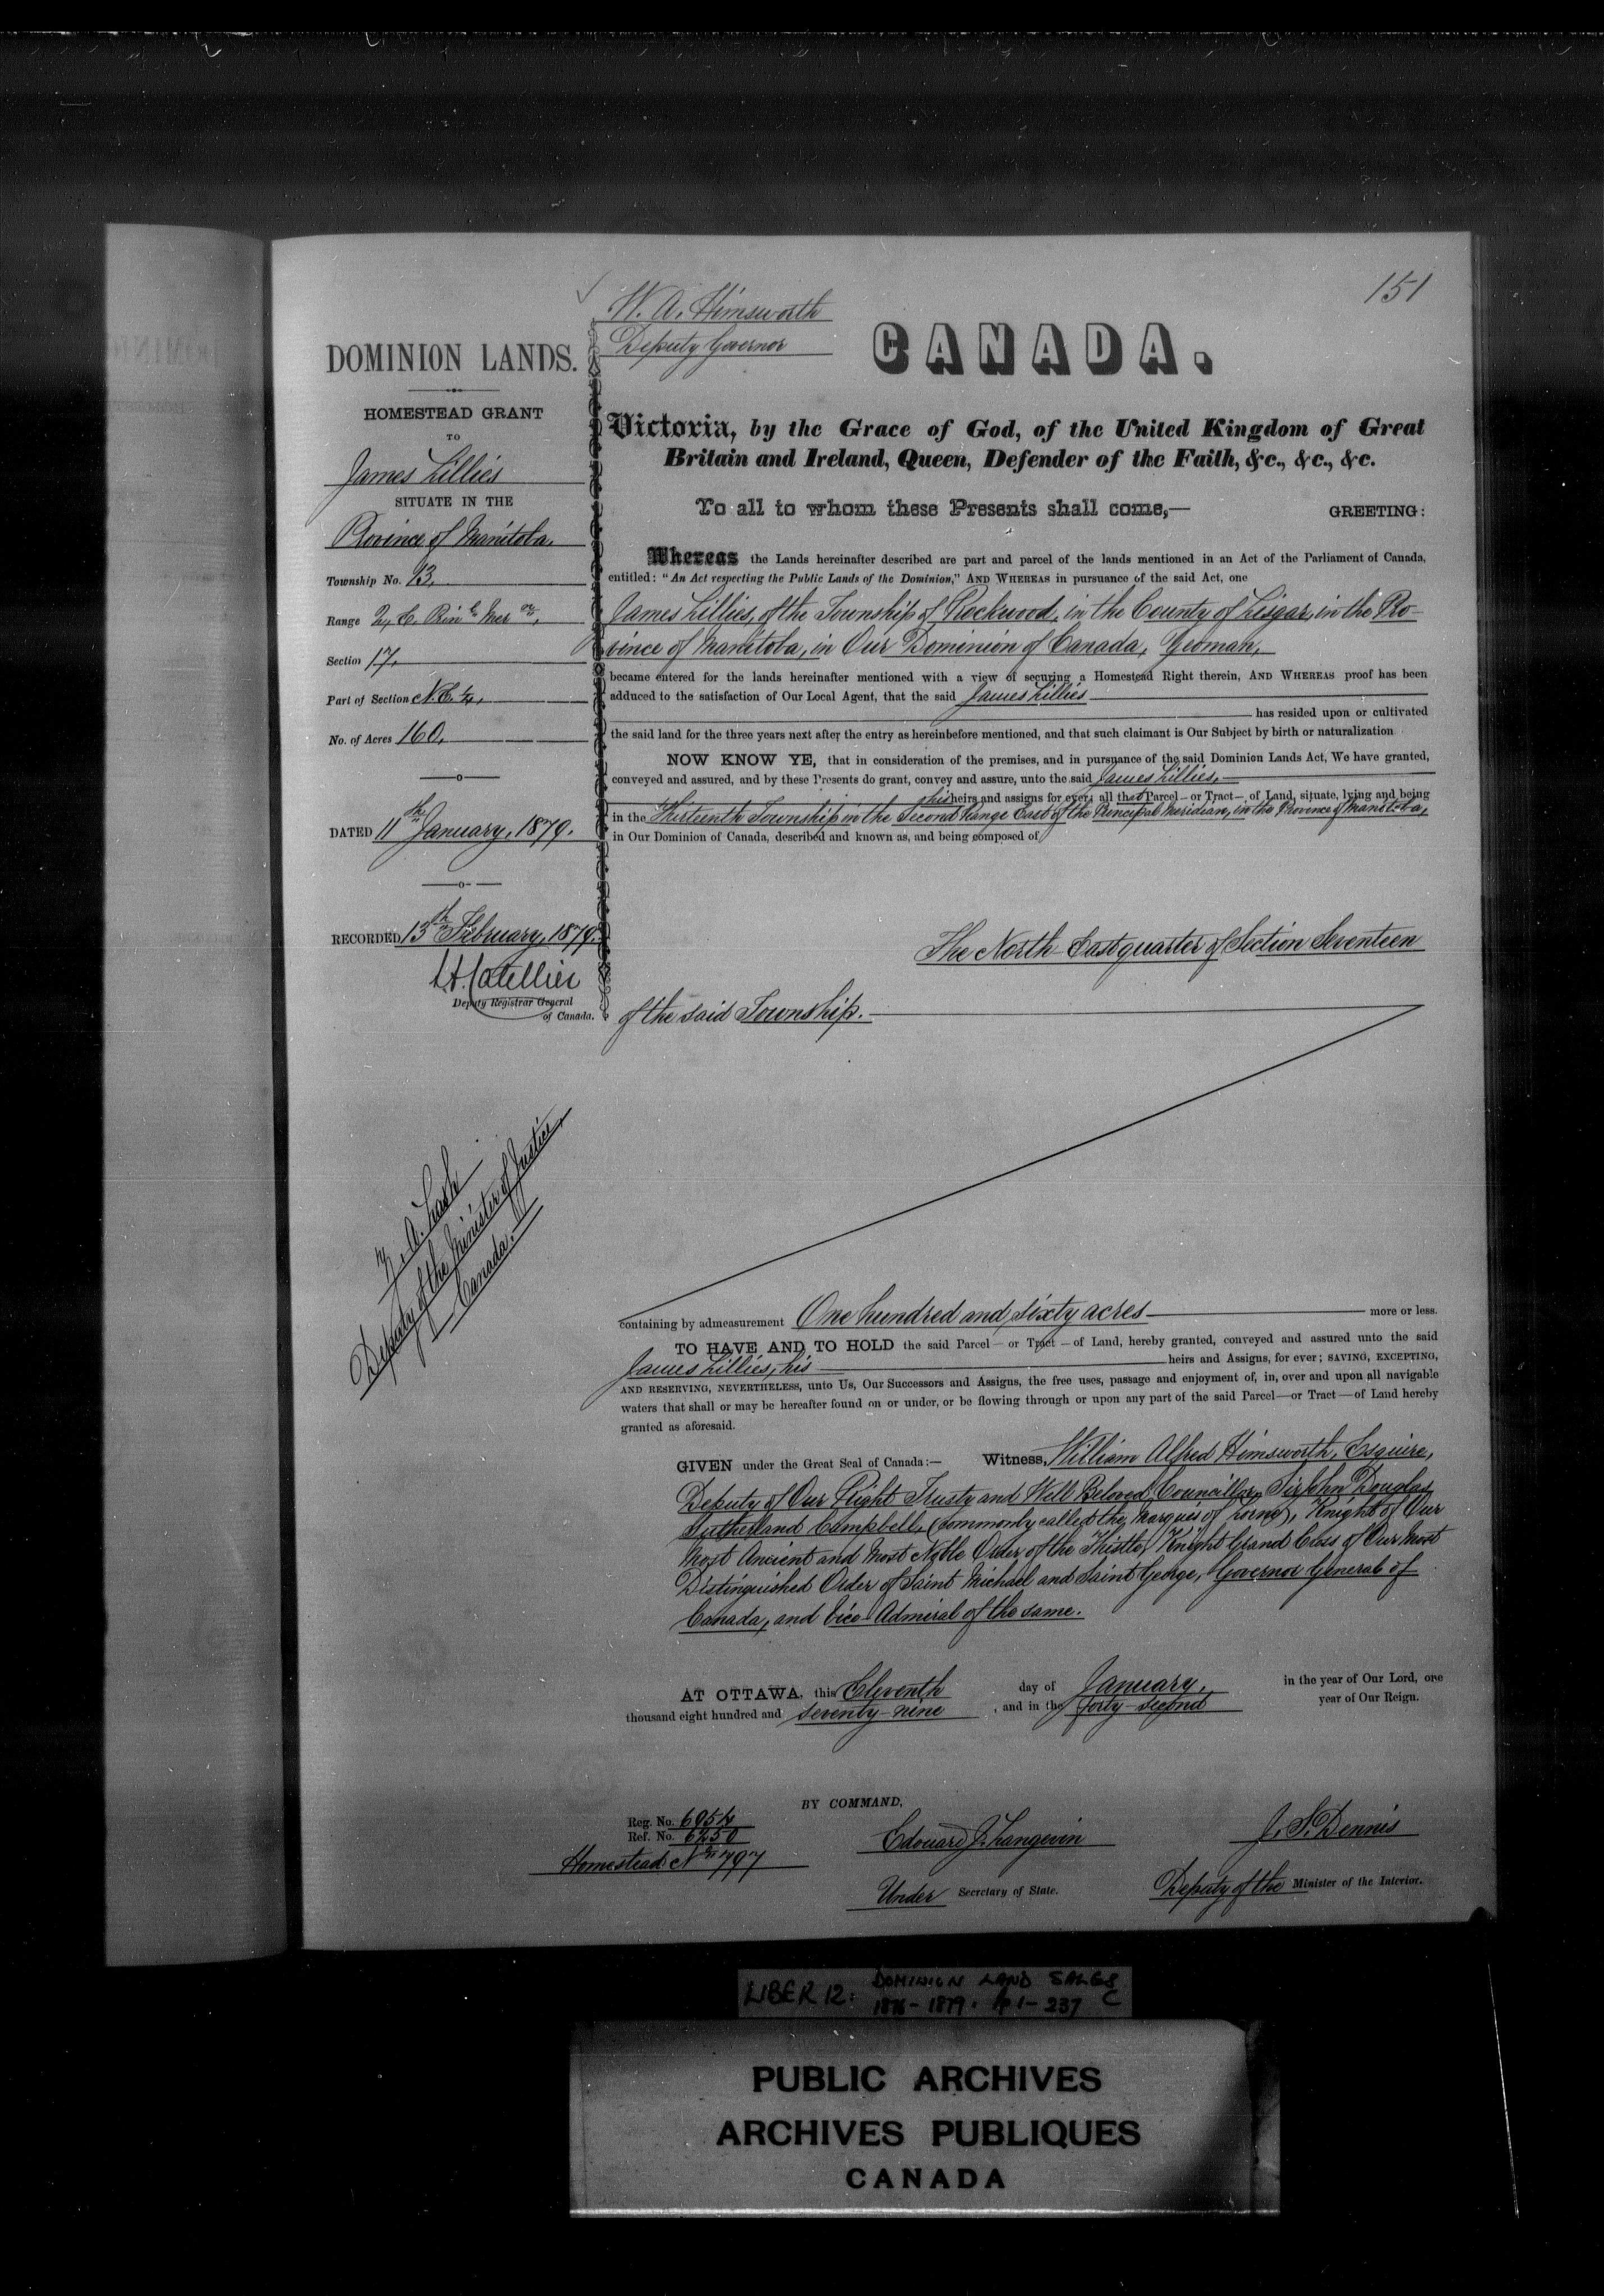 151
W. A. Himsworth
Deputy Governor
CANADA.
DOMINION LANDS.
HOMESTEAD GRANT
TO
James Lillies
SITUATE IN THE
Province of Manitoba.
Township No. 13,
Range 2, E. Prin l Mer an,
Section 17,
Part of Section N.E. 1/4,
No. of Acres 160,
DATED 11th January, 1879.
RECORDED 13th February, 1879.
L. A. Catellier
Deputy Registrar General
of Canada.
Z. A. Lash
Deputy of the Minister of Justice,
Canada.
Victoria, by the Grace of God, of the United Kingdom of Great
Britain and Ireland, Queen, Defender of the Faith, &c., &c., &c.
To all to whom these Presents shall come,— GREETING:
Whereas the Lands hereinafter described are part and parcel of the lands mentioned in an Act of the Parliament of Canada,
entitled: "An Act respecting the Public Lands of the Dominion," AND WHEREAS in pursuance of the said Act, one
James Lillies, of the Township of Rockwood, in the County of Lisgar, in the Pro-
vince of Manitoba, in Our Dominion of Canada, Yeoman,
became entered for the lands hereinafter mentioned with a view of securing a Homestead Right therein, AND WHEREAS proof has been
adduced to the satisfaction of Our Local Agent, that the said James Lillies
has resided upon or cultivated
the said land for the three years next after the entry as hereinbefore mentioned, and that such claimant is Our Subject by birth or naturalization
NOW KNOW YE, that in consideration of the premises, and in pursuance of the said Dominion Lands Act, We have granted,
conveyed and assured, and by these Presents do grant, convey and assure, unto the said James Lillies,
his heirs and assigns for ever; all that Parcel — or Tract — of Land, situate, lying and being
in the Thirteenth Township in the Second Range East of the Principal Meridian, in the Province of Manitoba,
in Our Dominion of Canada, described and known as, and being composed of
The North-East quarter of Section Seventeen
of the said Township.
containing by admeasurement One hundred and sixty acres more or less.
TO HAVE AND TO HOLD the said Parcel — or Tract — of Land, hereby granted, conveyed and assured unto the said
James Lillies, his heirs and Assigns, for ever; SAVING, EXCEPTING,
AND RESERVING, NEVERTHELESS, unto Us, Our Successors and Assigns, the free uses, passage and enjoyment of, in, over and upon all navigable
waters that shall or may be hereafter found on or under, or be flowing through or upon any part of the said Parcel—or Tract—of Land hereby
granted as aforesaid.
GIVEN under the Great Seal of Canada:— Witness, William Alfred Himsworth, Esquire,
Deputy of Our Right Trusty and Well Beloved Councillor, Sir John Douglas
Sutherland Campbell, (commonly called the Marquis of Lorne), Knight of Our
Most Ancient and Most Noble Order of the Thistle, Knight Grand Cross of Our Most
Distinguished Order of Saint Michael and Saint George, Governor General of
Canada, and Vice-Admiral of the same.
AT OTTAWA, this Eleventh day of January, in the year of Our Lord, one
thousand eight hundred and seventy-nine, and in the forty-second year of Our Reign.
BY COMMAND,
Reg. No. 6954
Ref. No. 6250
Homestead No. 797
Edouard J. Langevin
Under Secretary of State.
J. S. Dennis
Deputy of the Minister of the Interior.
LIBER 12: DOMINION LAND SALES
1876-1879. pp 1-237 C
PUBLIC ARCHIVES
ARCHIVES PUBLIQUES
CANADA